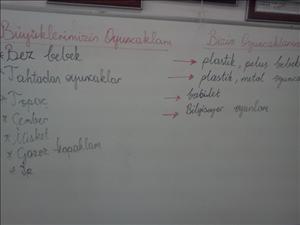 Büyüklerimizin Oyuncakları
* Bez bebek
* Tahtadan oyuncaklar
* Topaç
* Çember
* Misket
* Gazoz kapakları
* İp
Bizim Oyuncaklarımız
→ plastik, peluş bebek
→ plastik, metal oyunca
→ tablet
→ Bilgisayar oyunları